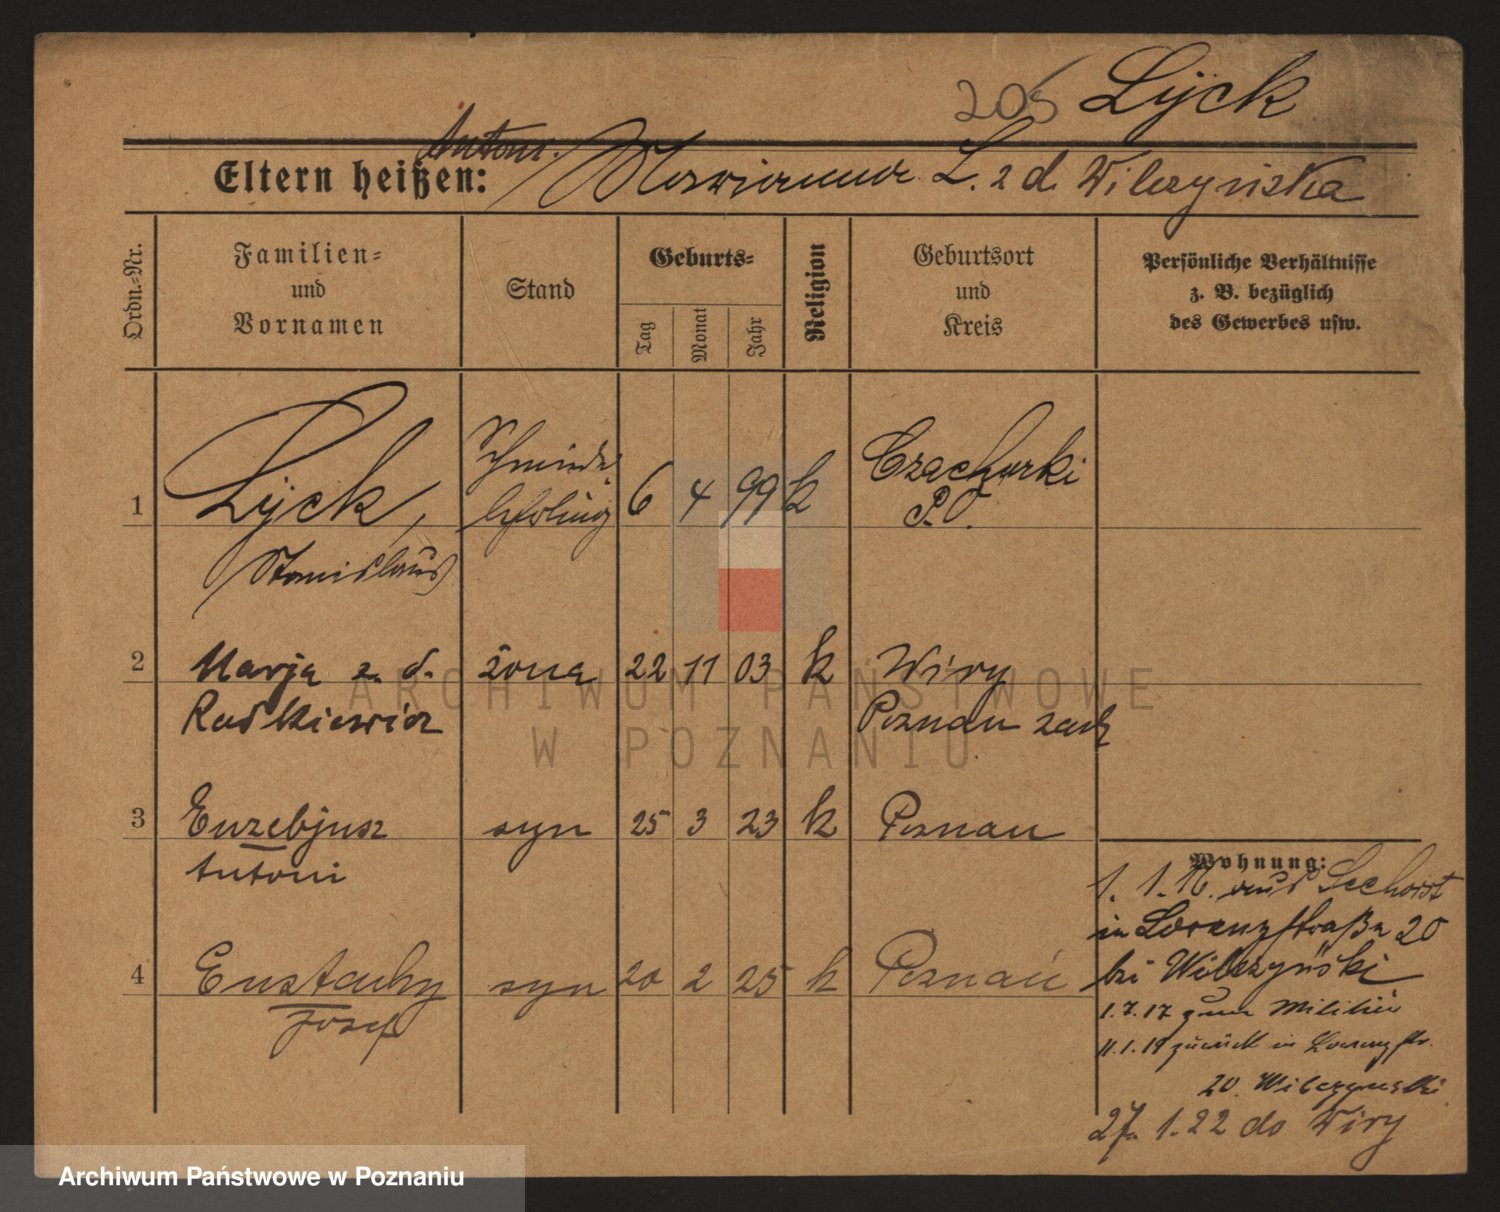 205 Lÿck
Antoni
Eltern heißen: Maryanna L. z d. Wilczyńska
Ordn.-Nr.
Familien-
und
Vornamen
Stand
Geburts-
Tag
Monat
Jahr
Religion
Geburtsort
und
Kreis
Persönliche Verhältnisse
z. B. bezüglich
des Gewerbes usw.
1 Lÿck, Schmiede-lehrling 6 4 99 k Czachurki
P.O.
Stanislaus
2 Marja z. d. żona 22 11 03 k Wiry
Radkiewicz Poznań zach
3 Euzebjusz syn 25 3 23 k Poznań
Antoni
4 Eustachy syn 20 2 25 k Poznań
Józef
Wohnung:
1. 1. 16. aus Seehorst
in Lorenzstraße 20
bei Wilczyński
1.7.17 zum Militär
11.1.19 zurück in Lorenzstr.
20. Wilczynski
27. 1. 22 do Wiry
ARCHIWUM PAŃSTWOWE
W POZNANIU
Archiwum Państwowe w Poznaniu